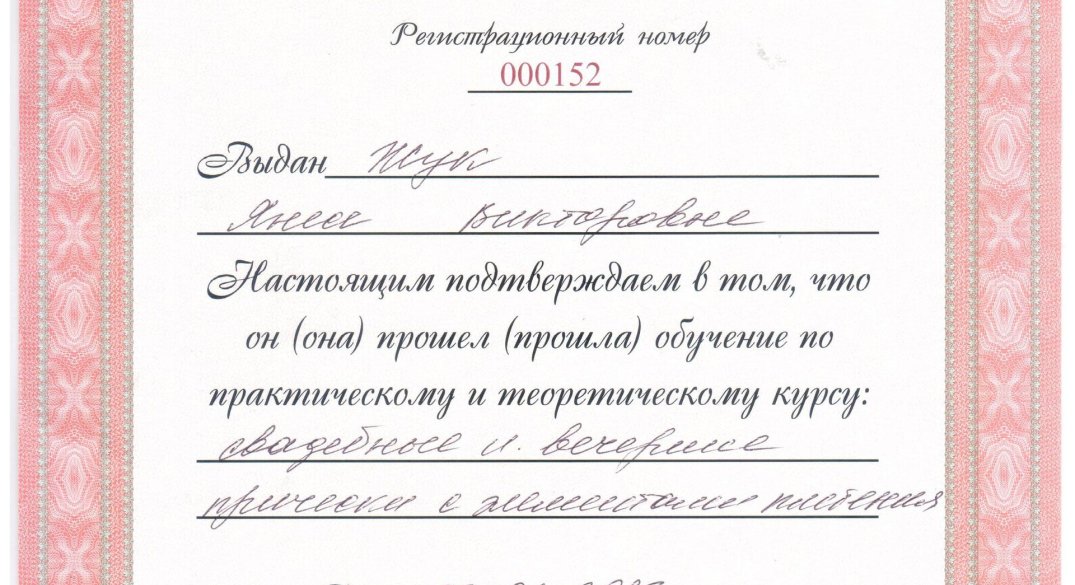 Регистрационный номер
000152
Выдан Жук
Яне Викторовне
Настоящим подтверждаем в том, что
он (она) прошел (прошла) обучение по
практическому и теоретическому курсу:
свадебные и вечерние
прически с элементами плетения